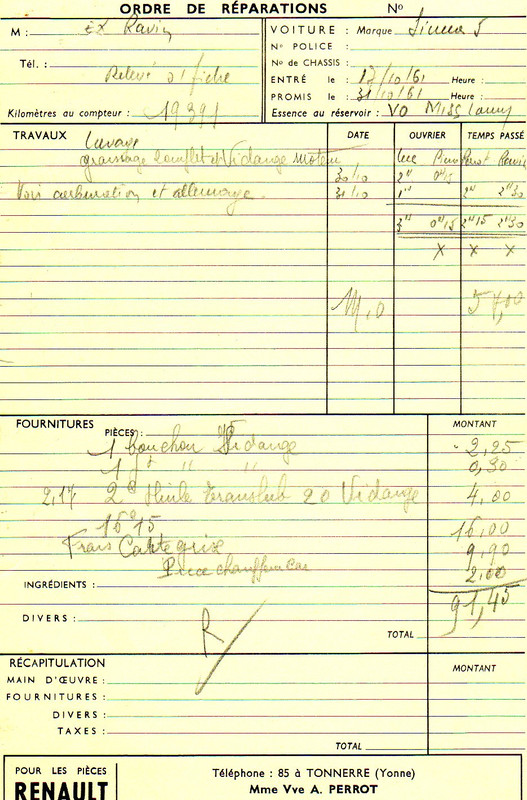 ORDRE DE RÉPARATIONS No
M : Ex Ravin
VOITURE : Marque Simca 5
No POLICE :
No de CHASSIS :
Tél. :
Relevé s/ fiche
ENTRÉ le : 17/10/61 Heure :
PROMIS le : 31/10/61 Heure :
Kilomètres au compteur : 19391
Essence au réservoir : VO
TRAVAUX DATE OUVRIER TEMPS PASSÉ
Lavage
graissage complet et Vidange moteur
30/10 2" 0"15
Voir carburation et allumage. 31/10 1" 2" 2"30
3" 0"15 2"15 2"30
X X X
M.O 57,00
FOURNITURES MONTANT
PIÈCES :
1 bouchon Vidange 2,25
1 jt " " 0,30
2,17 2 Huile Translub 20 Vidange 4,00
16,00
Frais Carte grise 9,90
2,00
INGRÉDIENTS :
91,45
DIVERS :
R
TOTAL
RÉCAPITULATION MONTANT
MAIN D'ŒUVRE :
FOURNITURES :
DIVERS :
TAXES :
TOTAL
POUR LES PIÈCES
RENAULT
Téléphone : 85 à TONNERRE (Yonne)
Mme Vve A. PERROT